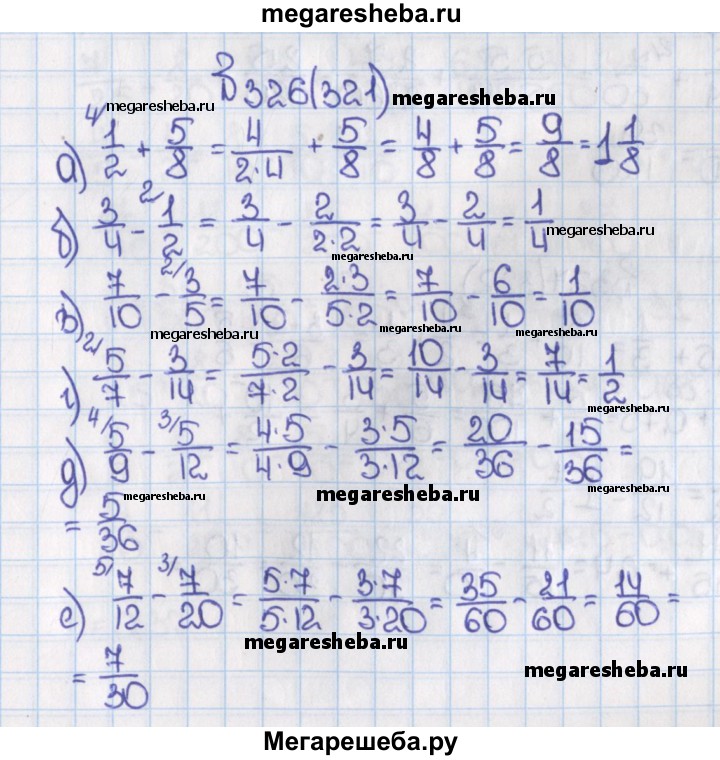 megaresheba.ru
В 326(321) megaresheba.ru
megaresheba.ru
а) 4/ 1/2 + 5/8 = 4/(2·4) + 5/8 = 4/8 + 5/8 = 9/8 = 1 1/8
б) 3/4 - 2/ 1/2 = 3/4 - 2/(2·2) = 3/4 - 2/4 = 1/4
megaresheba.ru
megaresheba.ru
в) 7/10 - 2/ 3/5 = 7/10 - (2·3)/(5·2) = 7/10 - 6/10 = 1/10
megaresheba.ru megaresheba.ru
г) 2/ 5/7 - 3/14 = (5·2)/(7·2) - 3/14 = 10/14 - 3/14 = 7/14 = 1/2
megaresheba.ru
д) 4/ 5/9 - 3/ 5/12 = (4·5)/(4·9) - (3·5)/(3·12) = 20/36 - 15/36 =
megaresheba.ru megaresheba.ru megaresheba.ru
= 5/36
е) 5/ 7/12 - 3/ 7/20 = (5·7)/(5·12) - (3·7)/(3·20) = 35/60 - 21/60 = 14/60 =
megaresheba.ru
= 7/30
megaresheba.ru
Мегарешеба.ру